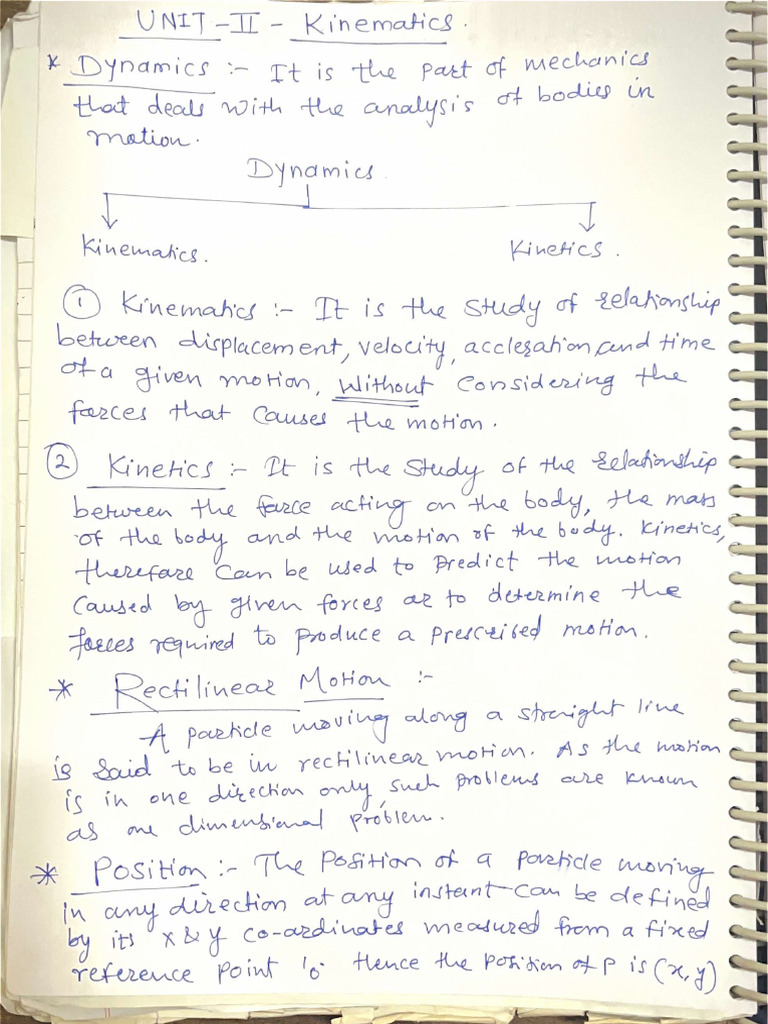 UNIT-II - Kinematics.
* Dynamics :- It is the part of mechanics
that deals with the analysis of bodies in
motion.
Dynamics.
Kinematics. Kinetics.
① Kinematics :- It is the study of relationship
between displacement, velocity, accleration, and time
of a given motion, without considering the
forces that causes the motion.
② Kinetics :- It is the study of the relationship
between the force acting on the body, the mass
of the body and the motion of the body. Kinetics,
therefore can be used to predict the motion
caused by given forces or to determine the
forces required to produce a prescribed motion.
* Rectilinear Motion :-
A particle moving along a straight line
is said to be in rectilinear motion. As the motion
is in one direction only, such problems are known
as one dimensional problem.
* Position :- The position of a particle moving
in any direction at any instant can be defined
by its x & y co-ordinates measured from a fixed
reference point 'o. Hence the position of P is (x, y)